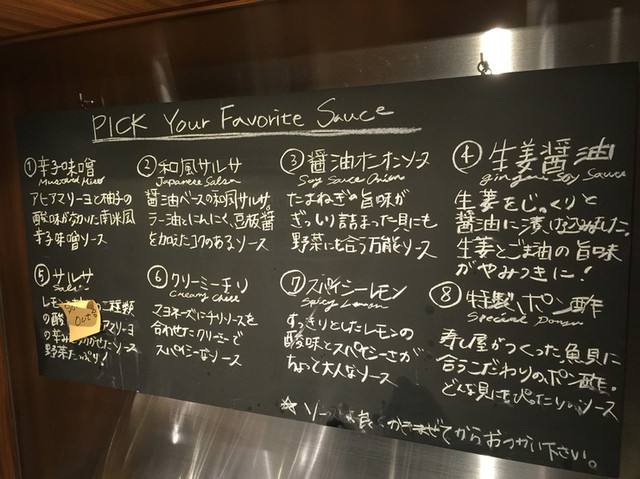 PICK Your Favorite Sauce
① 辛子味噌
Mustard Miso
アヒアマリーヨと柚子の
酸味が効いた南米風
辛子味噌ソース
② 和風サルサ
Japanese Salsa
醤油ベースの和風サルサ。
ラー油とにんにく、豆板醤
を加えたコクのあるソース
③ 醤油オニオンソース
Soy Sauce Onion
たまねぎの旨味が
ぎっしり詰まった貝にも
野菜にも合う万能ソース
④ 生姜醤油
ginger Soy Sauce
生姜をじっくりと
醤油に漬け込みました。
生姜とごま油の旨味
がやみつきに!
⑤ サルサ
Salsa
レモン 二種類
の酸 アマリーヨ
の辛み かせたソース
野菜たっぷり!
Sold
OUT
⑥ クリーミーチリ
Creamy Chili
マヨネーズにチリソースを
合わせたクリーミーで
スパイシーなソース
⑦ スパイシーレモン
Spicy Lemon
すっきりとしたレモンの
酸味とスパイシーさが
ちょっと大人なソース
⑧ 特製ポン酢
Special Ponzu
寿し屋がつくった魚貝に
合うこだわりのポン酢。
どんな貝にもぴったりなソース
☆ ソースは良くかきまぜてからおつかい下さい。